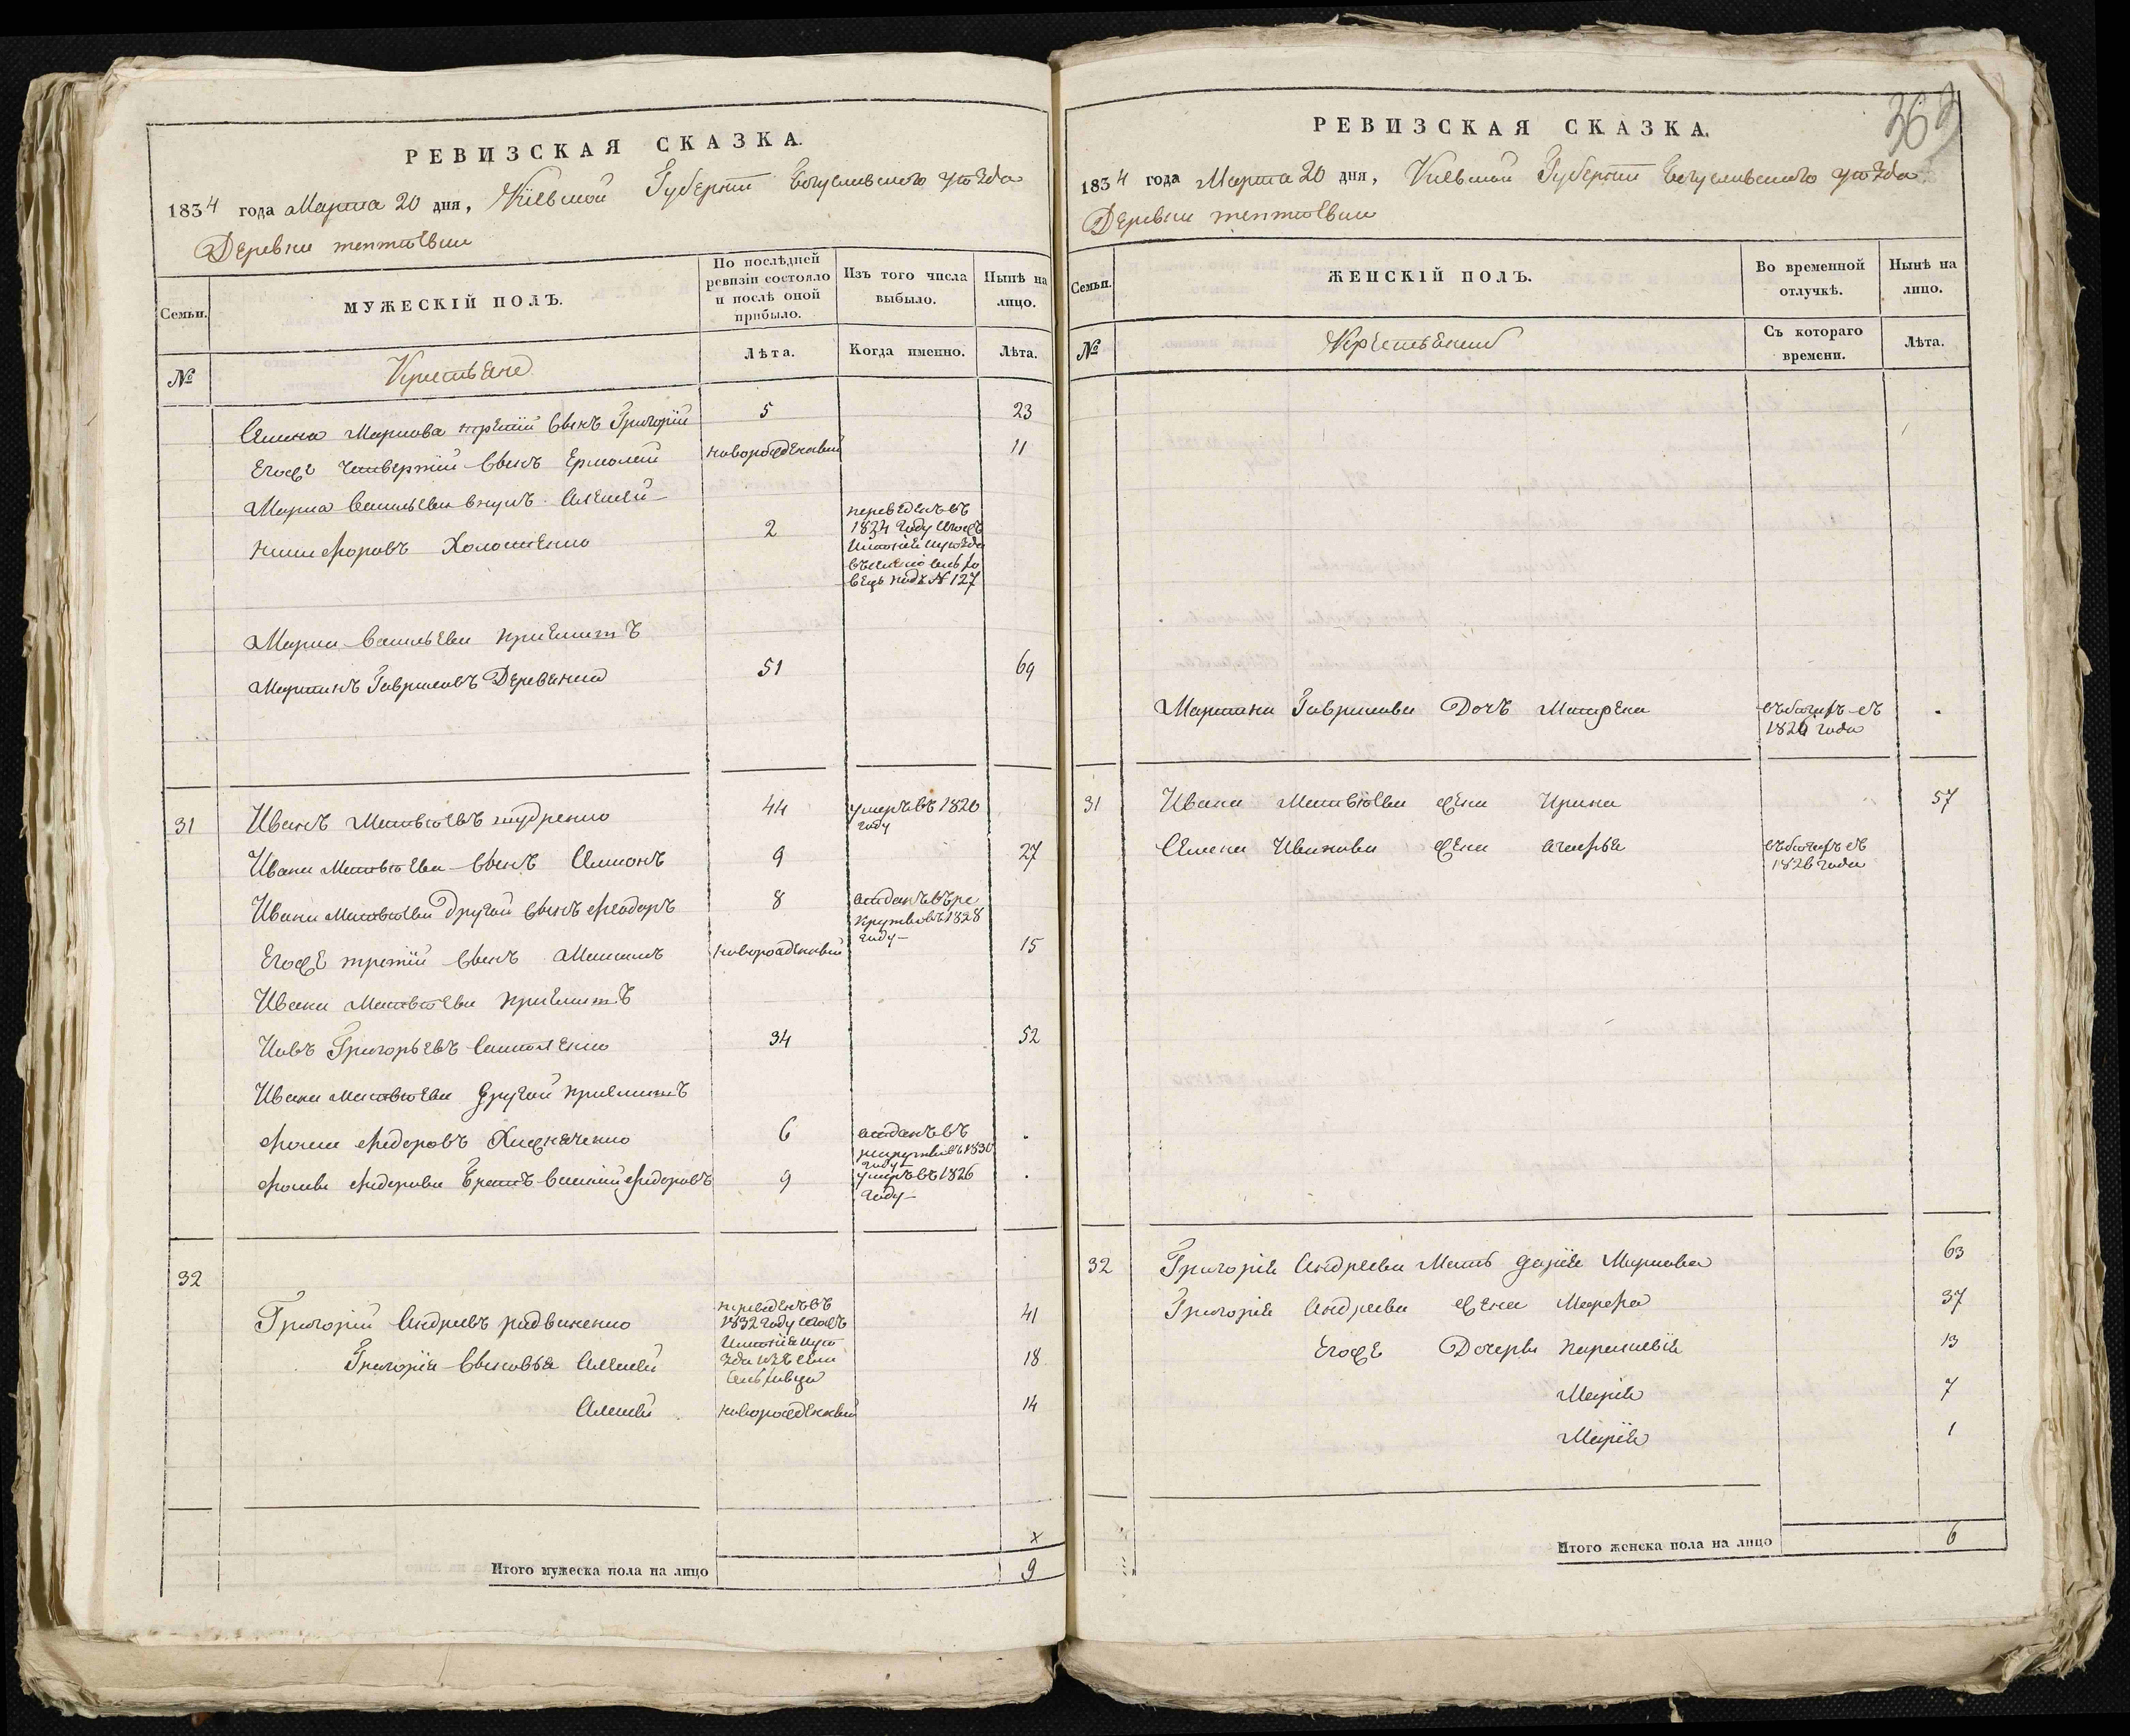 РЕВИЗСКАЯ СКАЗКА.
1834 года Марта 20 дня, Кіевской Губерніи Богуславского уѣзда
Деревни тептіевки
Семьи.
МУЖЕСКІЙ ПОЛЪ.
По послѣдней ревизіи состояло и послѣ оной прибыло.
Изъ того числа выбыло.
Нынѣ на лицо.
№
Крестьяне
Лѣта.
Когда именно.
Лѣта.
Маркова третій сынъ Григорій 5 23
Егоже четвертій сынъ Ермолай новорожденный 11
Марка Васильева внукъ Алексей
Никифоровъ 2
переведенъ въ
1824 году
подъ № 127
Марка Васильева приемишъ
Мартинъ Гавриловъ Деревянко 51 69
31 Иванъ Матвѣевъ 44 умеръ въ 1820
году
Ивана Матвѣева сынъ Симонъ 9 27
Ивана Матвѣева другой сынъ Феодоръ 8 отданъ въ ре
круты въ 1828
году
Егоже третій сынъ новорожденный 15
Ивана Матвѣева приемишъ
Иовъ Григорьевъ 34 52
Ивана Матвѣева другой приемишъ
Фома Федоровъ 6 отданъ въ
рекруты въ 1830
году
Федорова братъ Федоровъ 9 умеръ въ 1826
году
32
Григорій Андреевъ 41
переведенъ въ
1832 году
Григорія сыновья Алексей 18
Алексей новорожденный 14
х
Итого мужеска пола на лицо 9
363
РЕВИЗСКАЯ СКАЗКА.
1834 года Марта 20 дня, Кіевской Губерніи Богуславского уѣзда
Деревни тептіевки
Семьи.
ЖЕНСКІЙ ПОЛЪ.
Во временной отлучкѣ.
Нынѣ на лицо.
№
Крестьянки
Съ котораго времени.
Лѣта.
Мартина Гаврилова Дочъ Матрена въ бегахъ съ
1826 года
31 Ивана Матвѣева жена Ирина 57
Симона Иванова жена Агафья въ бегахъ съ
1826 года
32 Григорія Андреева Мать Дарія Маркова 63
Григорія Андреева жена Марфа 37
Егоже Дочери Параскевія 13
Марія 7
Марія 1
Итого женска пола на лицо 6